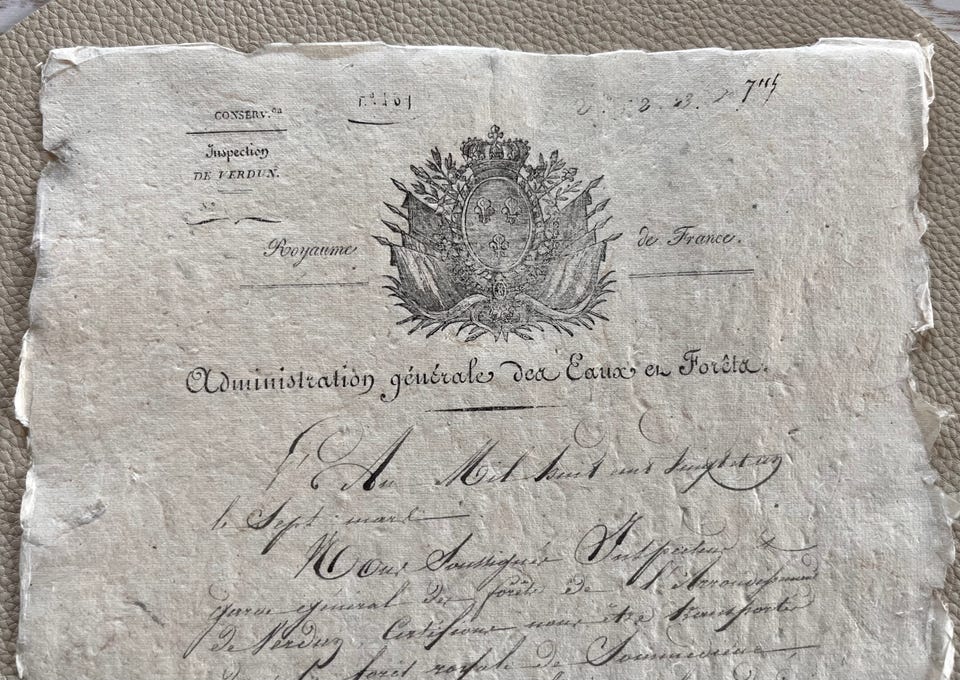 CONSERV.on
N.o 151
7115
Inspection
DE VERDUN.
N.o
Royaume de France.
Administration générale des Eaux et Forêts.
L'An Mil huit cent vingt et un
le Sept mars
Nous Soussignés Inspecteur &
garde général des forêts de l'Arrondissement
de Verdun Certifions nous être transportés
forêt royale de